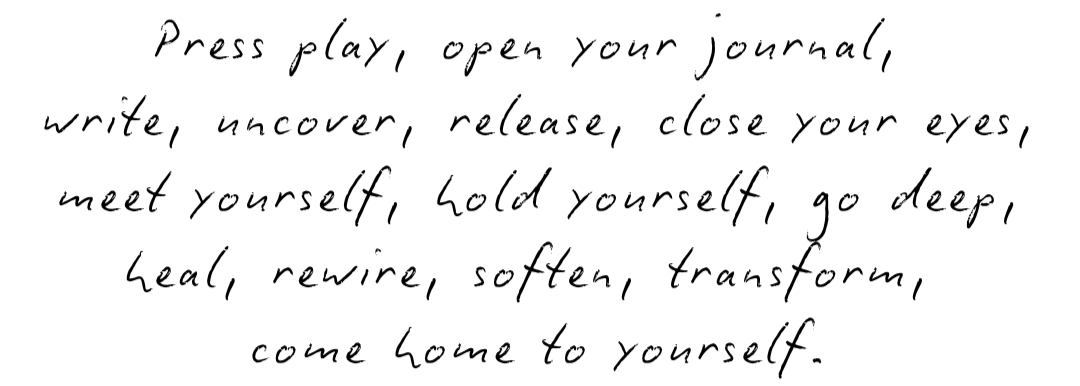 Press play, open your journal,
write, uncover, release, close your eyes,
meet yourself, hold yourself, go deep,
heal, rewire, soften, transform,
come home to yourself.